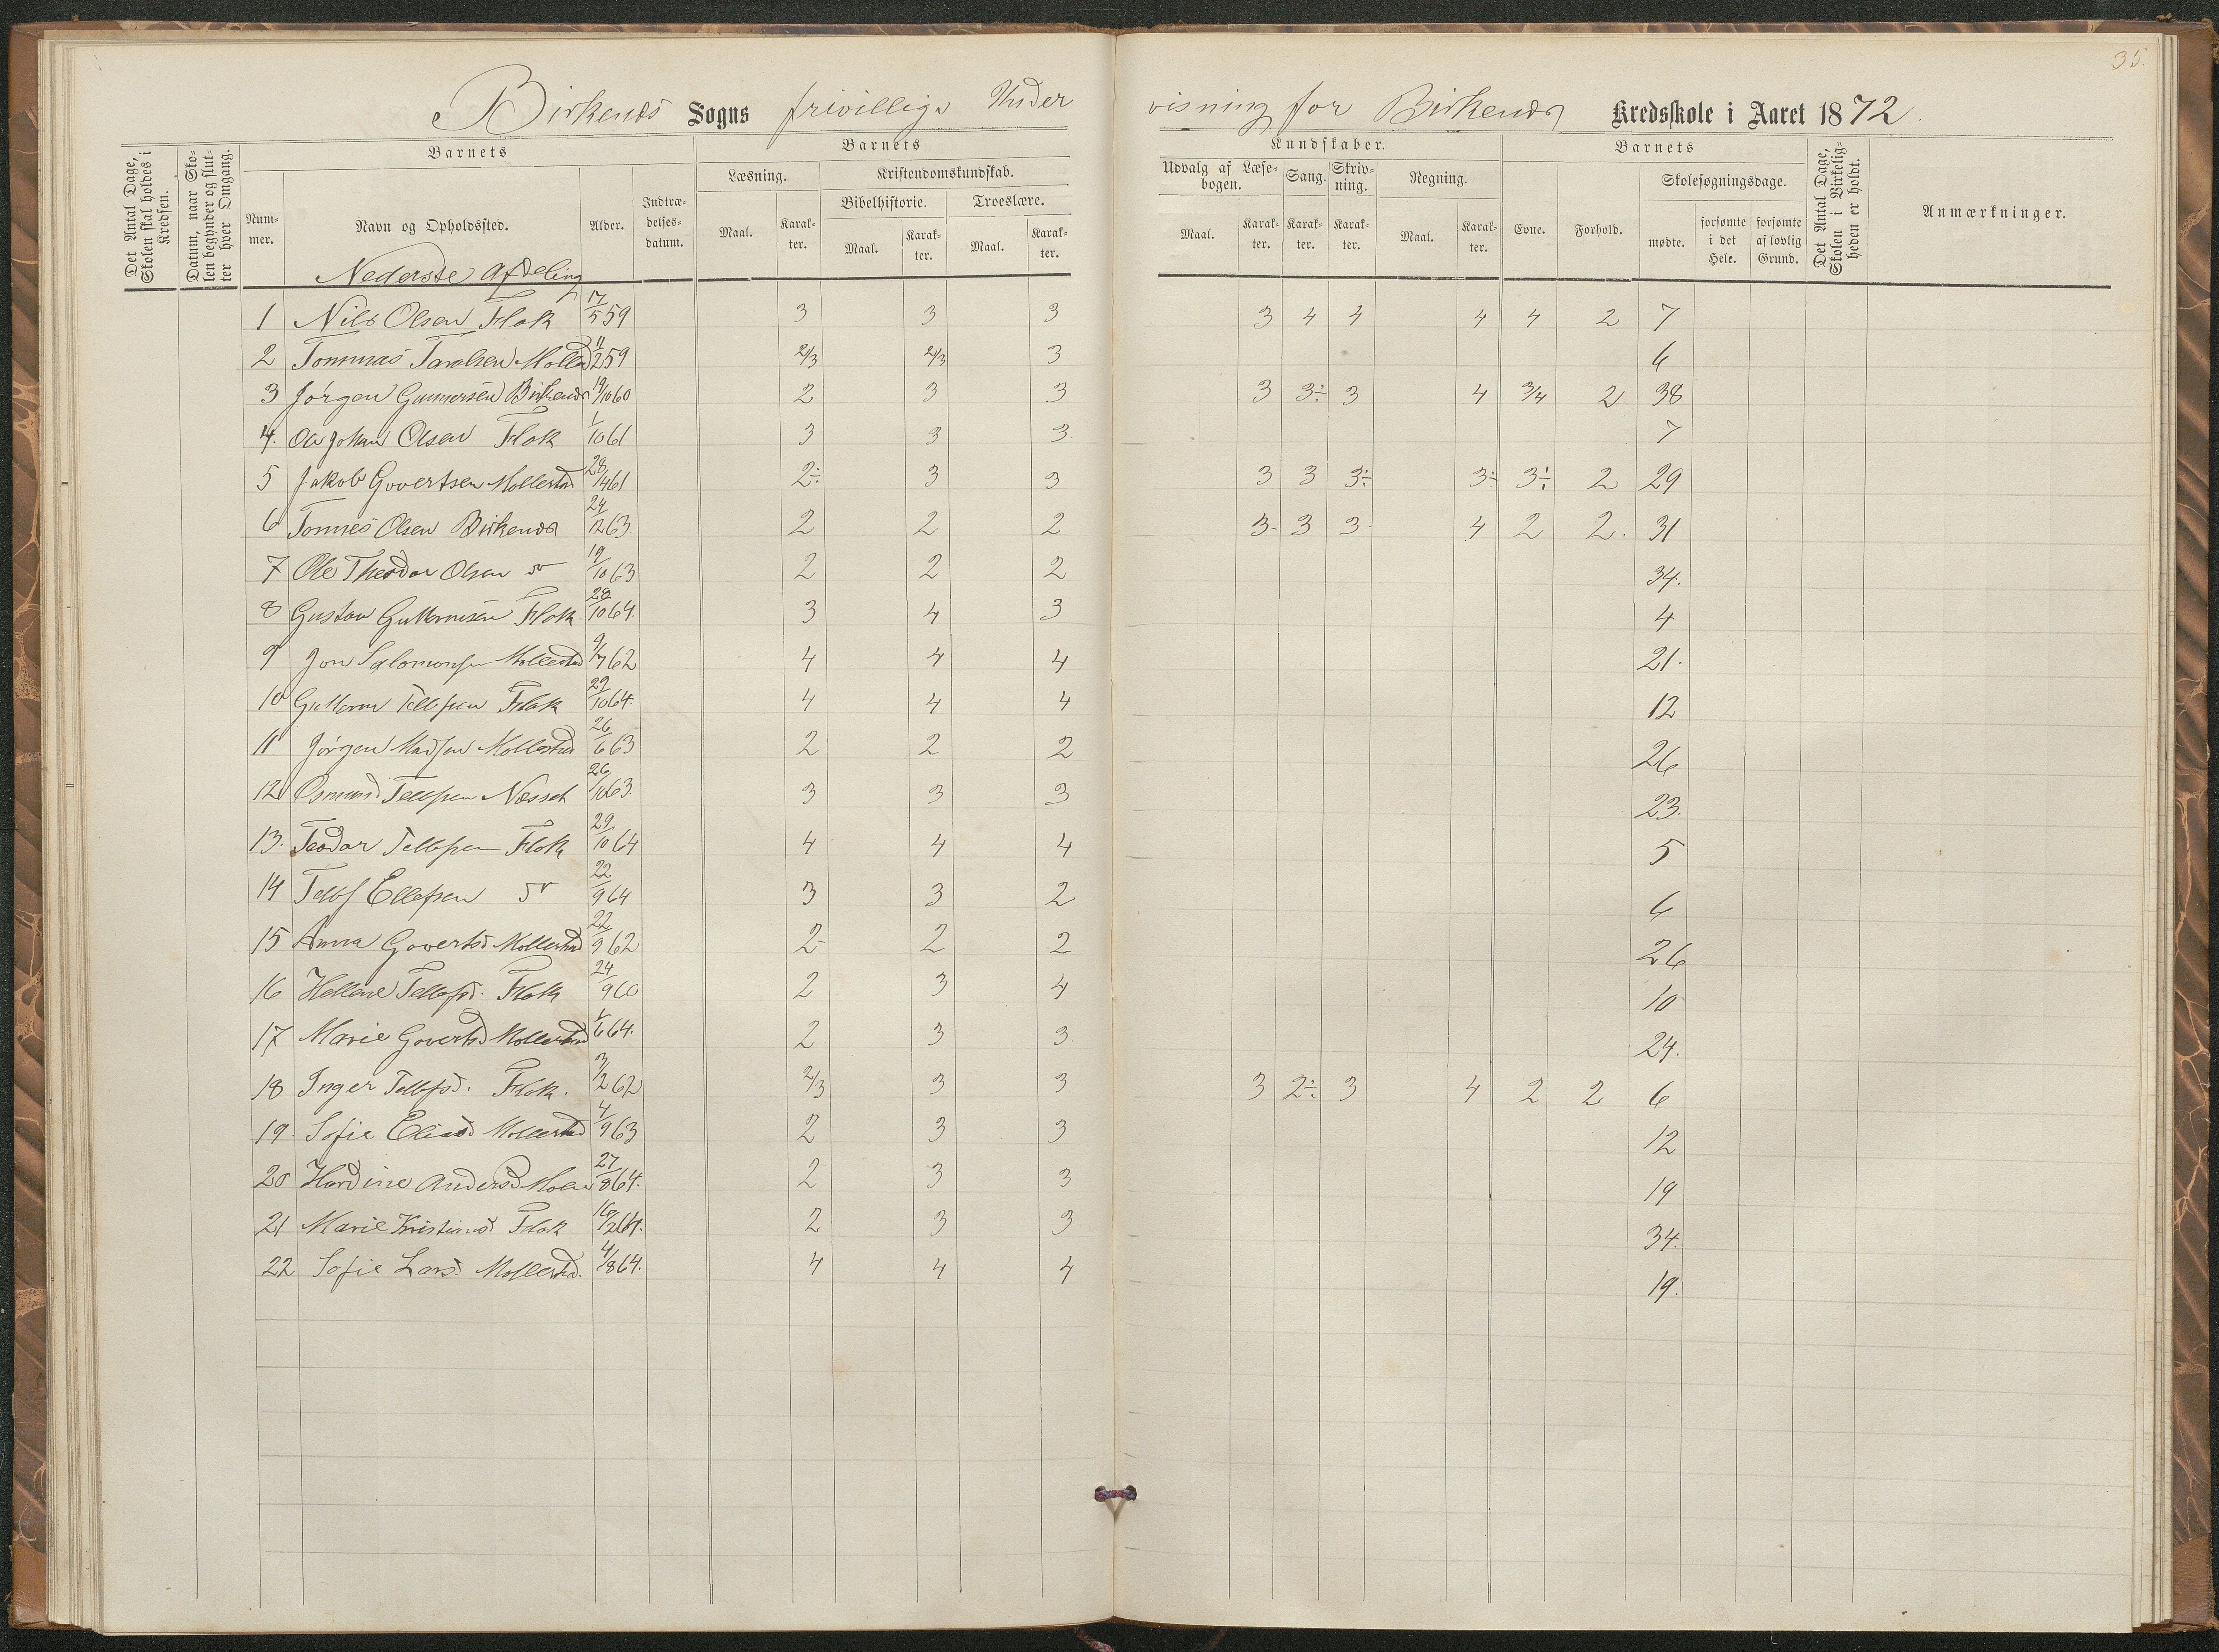 35.
Birkenes Sogns frivillige Undervisning for Birkenæs Kredsskole i Aaret 1872.
Det Antal Dage, Skolen skal holdes i Kredsen.
Datum, naar Skolen begynder og slutter hver Omgang.
Barnets Barnets Kundskaber. Barnets
Det Antal Dage, Skolen i Virkeligheden er holdt.
Anmærkninger.
Læsning. Kristendomskundskab. Udvalg af Læsebogen. Sang. Skrivning. Regning. Skolesøgningsdage.
Bibelhistorie. Troeslære.
Nummer. Navn og Opholdssted. Alder. Indtrædelsesdatum. Maal. Karakter. Maal. Karakter. Maal. Karakter. Maal. Karakter. Karakter. Karakter. Maal. Karakter. Evne. Forhold. mødte. forsømte i det Hele. forsømte af lovlig Grund.
Nederste Afdeling
1 Nils Olsen Flak 17/5 59 3 3 3 3 4 4 4 4 2 7
2 Tommas Taralsen Mollestad 11/2 59 2/3 2/3 3 6
3 Jørgen Gunnersen Birkenæs 19/10 60 2 3 3 3 3÷ 3 4 3/4 2 38
4. Ole Johan Olsen Flak 1/10 61 3 3 3 7
5 Jakob Govertsen Mollestad 28/4 61 2÷ 3 3 3 3 3÷ 3÷ 3÷ 2 29
6 Tomnes Olsen Birkenæs 24/12 63. 2 2 2 3- 3 3- 4 2 2. 31
7 Ole Theodor Olsen do 19/10 63 2 2 2 34.
8 Gustav Guttormsen Flak 28/10 64. 3 4 3 4
9 Jon Salomonsen Mollestad 9/7 62 4 4 4 21.
10 Guttorm Tellefsen Flak 29/10 64. 4 4 4 12
11 Jørgen Madsen Mollestad 26/6 63 2 2 2 26
12 Osmund Tellefsen Næsset 26/10 63. 3 3 3 23.
13. Teodor Tellefsen Flak 29/10 64 4 4 4 5
14 Tellef Ellefsen do 22/9 64 3 3 2 6
15 Anna Govertsd Mollestad 22/9 62 2- 2 2 26
16 Hellene Tellefsd. Flak 24/9 60 2 3 4 10
17 Marie Govertsd Mollestad 1/6 64. 2 3 3 24.
18 Inger Tellefsd. Flak. 3/2 62 2/3 3 3 3 2÷ 3 4 2 2 6
19. Sofie Eliasd Mollestad 4/9 63 2 3 3 12
20 Hardine Andersd 27/8 64. 2 3 3 19
21 Marie Kristiansd Flak 16/2 64. 2 3 3 34.
22 Sofie Larsd. Mollestad. 4/8 64. 4 4 4 19.